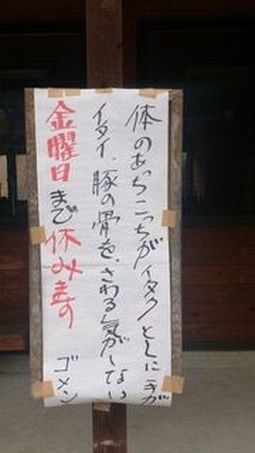 体のあちこっちがイタク/とくに手が
イタイ、豚の骨を、さわる気がしない
金曜日まで休みます
ゴメン